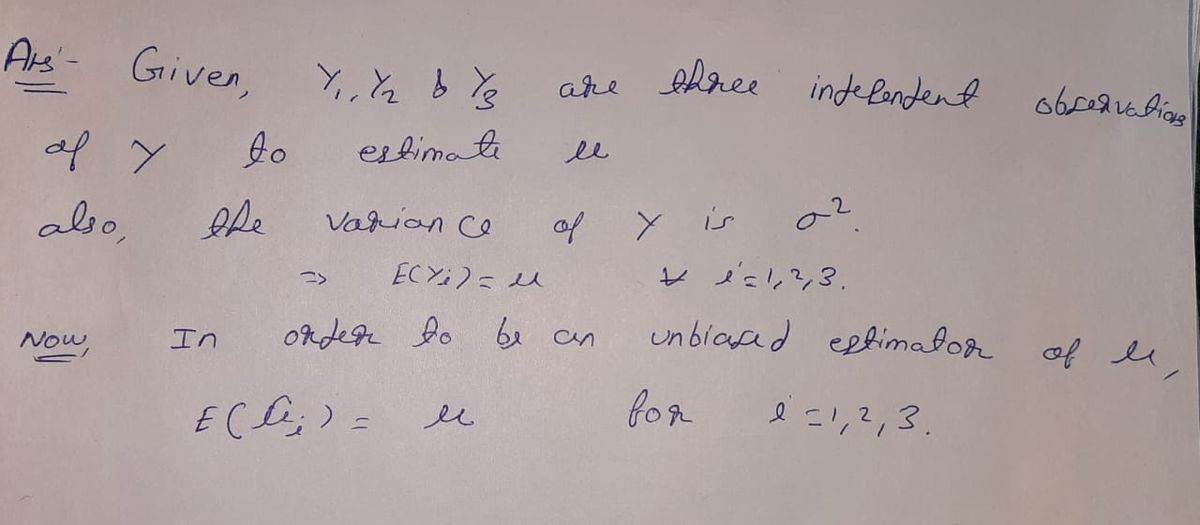 Ans:- Given, Y₁, Y₂ & Y₃ are three independent observations
of Y to estimate μ
also, the variance of Y is σ².
⇒ E(Yᵢ) = μ ∀ i=1,2,3.
Now, In order to be an unbiased estimator of μ,
E(μ̂ᵢ) = μ for i=1,2,3.